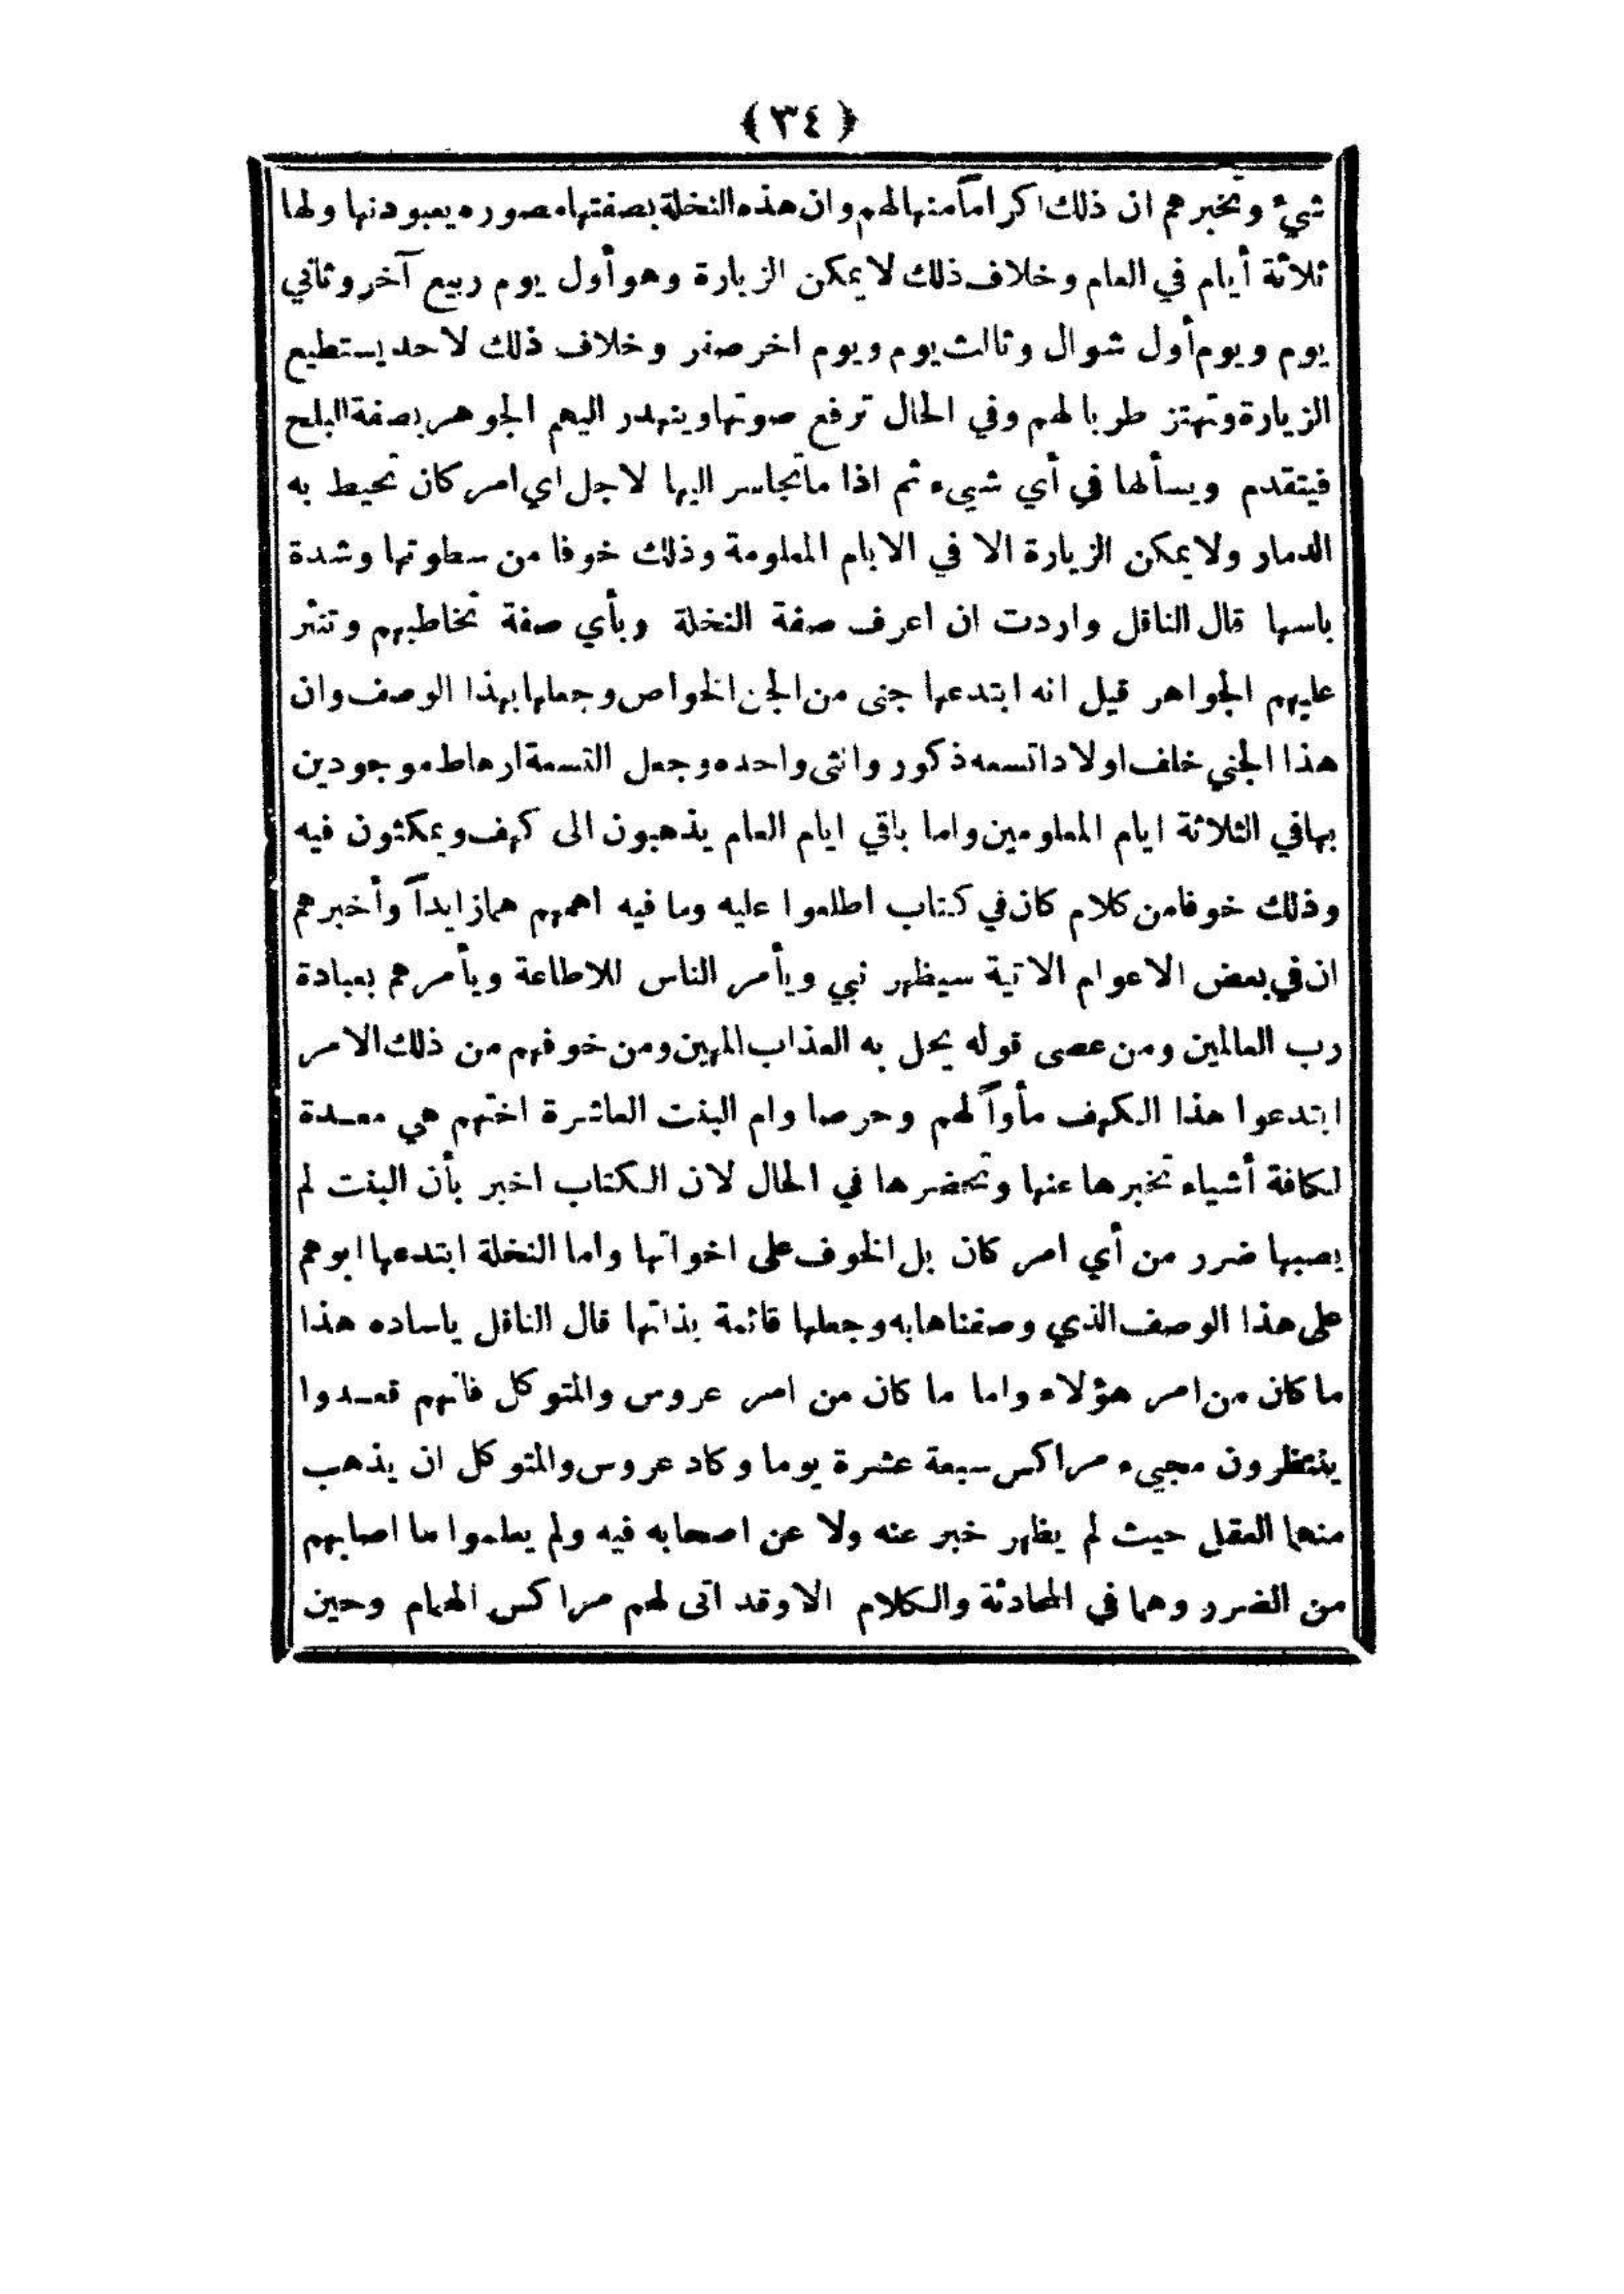 ﴿ ٣٤ ﴾
شيء وتخبرهم ان ذلك اكراماً منها لهم وان هذه النخلة بصفتها مصوره يعبودنها ولها
ثلاثة أيام في العام وخلاف ذلك لا يمكن الزيارة وهو أول يوم ربيع آخر وثاني
يوم ويوم أول شوال وثالث يوم ويوم اخر صفر وخلاف ذلك لا حد يستطيع
الزيارة وتهتز طربا لهم وفي الحال ترفع صوتها وينهدر اليهم الجوهر بصفة البلح
فيتقدم ويسألها في أي شيء ثم اذا ما تجاسر اليها لاجل اي امر كان تحيط به
الدمار ولا يمكن الزيارة الا في الايام المعلومة وذلك خوفا من سطوتها وشدة
باسها قال الناقل واردت ان اعرف صفة النخلة وبأي صفة تخاطبهم وتنثر
عليهم الجواهر قيل انه ابتدعها جنى من الجن الخواص وجعلها بهذا الوصف وان
هذا الجني خلف اولادا تسعه ذكور وانثى واحده وجعل التسعة ارهاط موجودين
بها في الثلاثة ايام المعلومين واما باقي ايام العام يذهبون الى كهف ويمكثون فيه
وذلك خوفا من كلام كان في كتاب اطلعوا عليه وما فيه اهمهم هما زايداً وأخبرهم
ان في بعض الاعوام الاتية سيظهر نبي ويأمر الناس للاطاعة ويأمرهم بعبادة
رب العالمين ومن عصى قوله يحل به العذاب المهين ومن خوفهم من ذلك الامر
ابتدعوا هذا الكهف مأواً لهم وحرصا وام البنت العاشرة اختهم هي معدة
لكافة أشياء تخبرها عنها وتحضرها في الحال لان الكتاب اخبر بأن البنت لم
يصبها ضرر من أي امر كان بل الخوف على اخواتها واما النخلة ابتدعها ابوهم
على هذا الوصف الذي وصفناها به وجعلها قائمة بذاتها قال الناقل ياساده هذا
ما كان من امر هؤلاء واما ما كان من امر عروس والمتوكل فانهم قعدوا
ينتظرون مجيء مراكس سبعة عشرة يوما وكاد عروس والمتوكل ان يذهب
منهما العقل حيث لم يظهر خبر عنه ولا عن اصحابه فيه ولم يعلموا ما اصابهم
من الضرر وهما في المحادثة والكلام الا وقد اتى لهم مراكس الهمام وحين